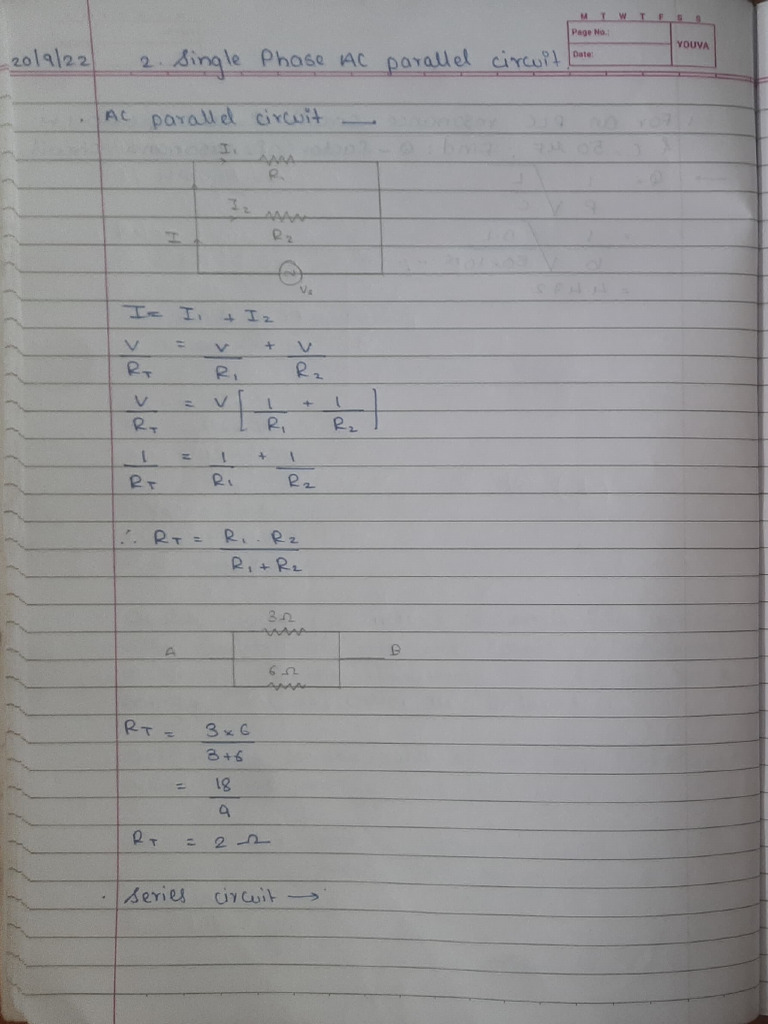 M T W T F S S
Page No.:
Date:
YOUVA
20/9/22 2. Single Phase AC parallel circuit
. AC parallel circuit —
I1
R1
I2
R2
I
Vs
I = I1 + I2
V/RT = V/R1 + V/R2
V/RT = V [ 1/R1 + 1/R2 ]
1/RT = 1/R1 + 1/R2
∴ RT = R1 . R2 / R1 + R2
3Ω
A B
6Ω
RT = 3 × 6 / 3+6
= 18 / 9
RT = 2 Ω
. Series circuit →